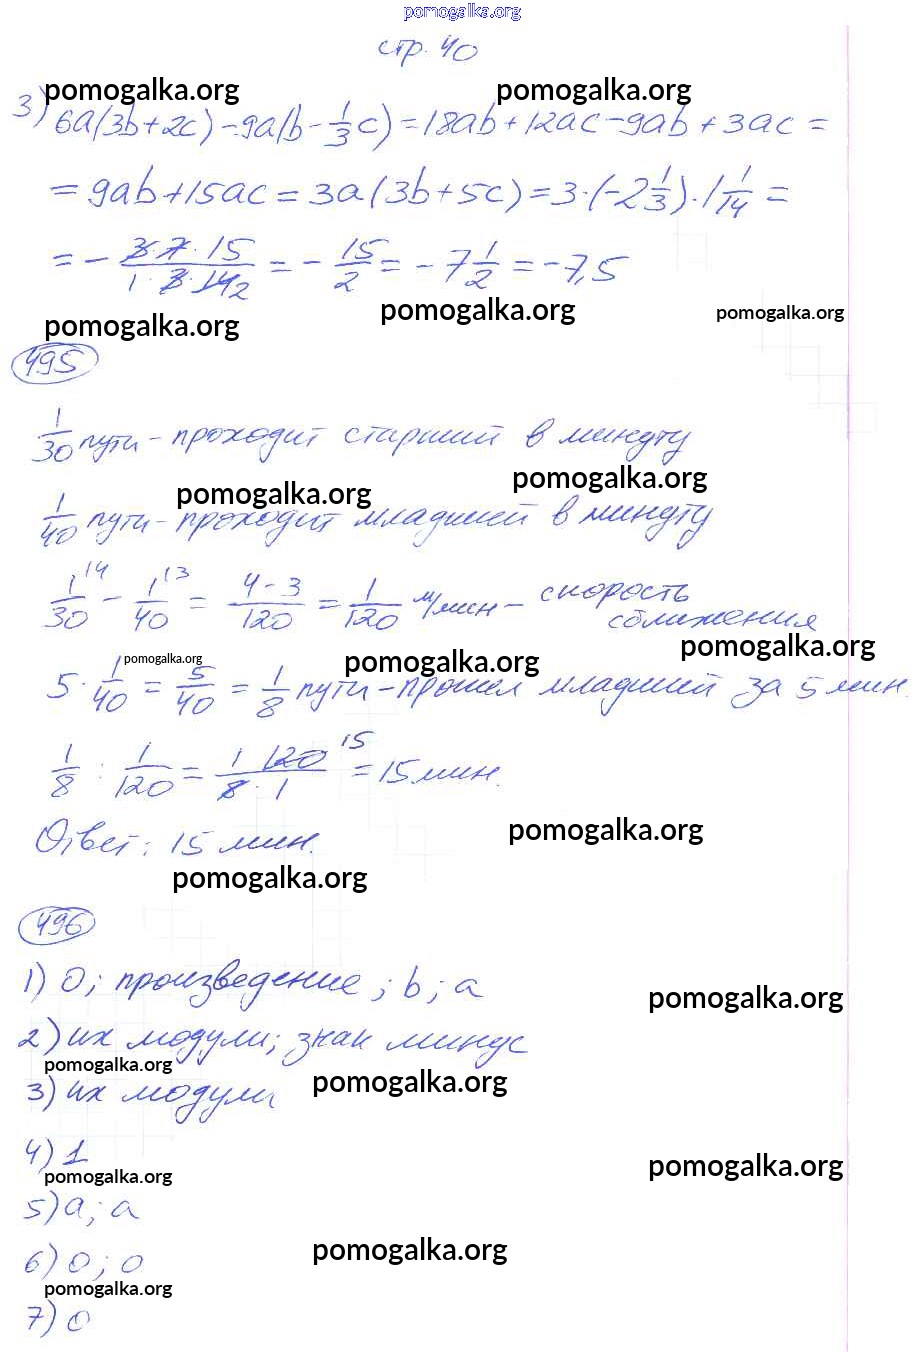 pomogalka.org
стр. 40
pomogalka.org pomogalka.org
3) 6a(3b+2c) - 9a(b - 1/3 c) = 18ab + 12ac - 9ab + 3ac =
= 9ab + 15ac = 3a(3b+5c) = 3·(-2 1/3)·1 1/14 =
= - 3·7·15/1·3·14 2 = - 15/2 = - 7 1/2 = -7,5
pomogalka.org pomogalka.org pomogalka.org
495
1/30 пути - проходит старший в минуту
pomogalka.org pomogalka.org
1/40 пути - проходит младший в минуту
1/30 \4 - 1/40 \3 = 4-3/120 = 1/120 м/мин - скорость
сближения
pomogalka.org pomogalka.org pomogalka.org
5 · 1/40 = 5/40 = 1/8 пути - прошел младший за 5 мин.
1/8 : 1/120 = 1 120 15/8 · 1 = 15 мин.
pomogalka.org
Ответ: 15 мин.
pomogalka.org
496
1) 0; произведение; b; a
pomogalka.org
2) их модули; знак минус
pomogalka.org pomogalka.org
3) их модули
4) 1
pomogalka.org pomogalka.org
5) a; a
pomogalka.org
6) 0; 0
pomogalka.org
7) 0